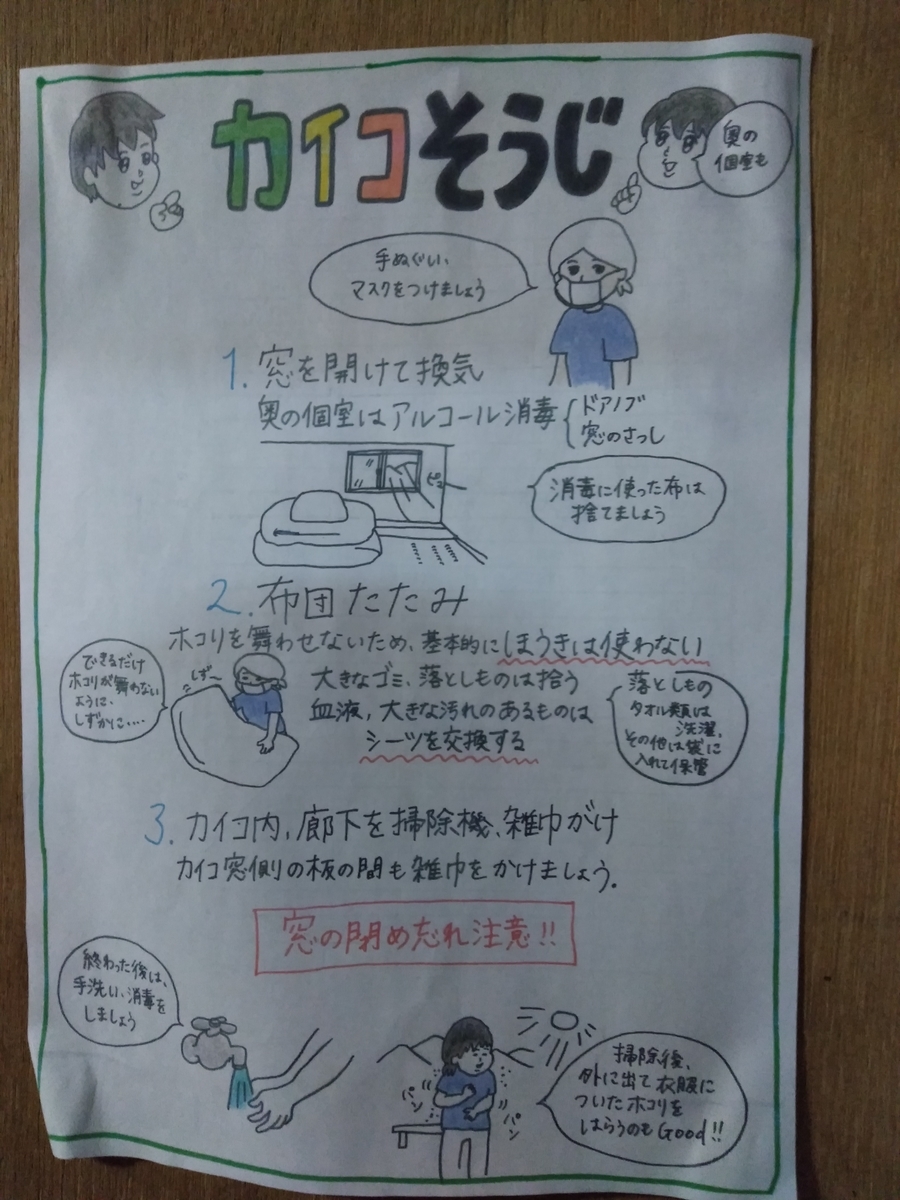 カイコそうじ
奥の
個室も
手ぬぐい、
マスクをつけましょう
1. 窓を開けて換気
奥の個室はアルコール消毒
ドアノブ
窓のさっし
ピュー
消毒に使った布は
捨てましょう
2. 布団たたみ
ホコリを舞わせないため、基本的にほうきは使わない
できるだけ
ホコリが舞わない
ように、
しずかに....
しず～
大きなゴミ、落としものは拾う
血液,大きな汚れのあるものは
シーツを交換する
落としもの
タオル類は
洗濯、
その他は袋に
入れて保管
3. カイコ内,廊下を掃除機、雑巾がけ
カイコ窓側の板の間も雑巾をかけましょう.
窓の閉め忘れ注意!!
終わった後は、
手洗い、消毒を
しましょう
パン
パン
掃除後、
外に出て衣服に
ついたホコリを
はらうのもGood!!